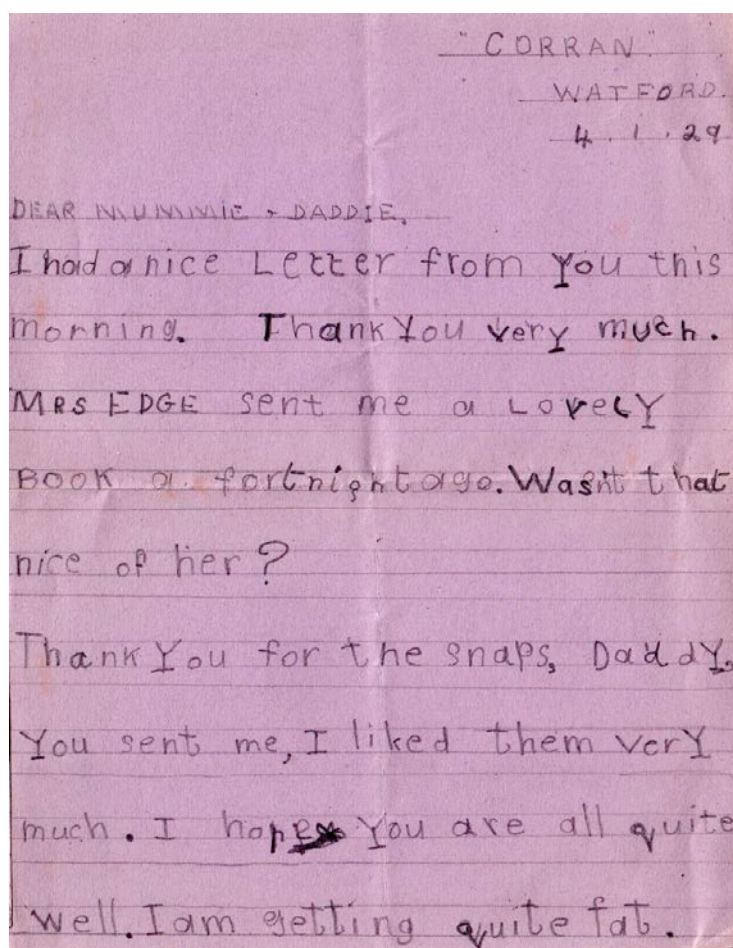 "CORRAN"
WATFORD.
4.1.29
DEAR MUMMIE + DADDIE,
I had a nice Letter from You this
morning. Thank You very much.
MRS EDGE sent me a LoveLY
BOOK a fortnight ago. Wasn't that
nice of her?
Thank You for the snaps, DaddY,
You sent me, I liked them verY
much. I hope You are all quite
well. I am getting quite fat.